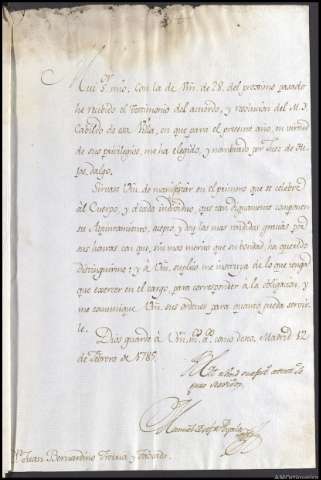 Mui Sr. mio: con la de Vm. de 28. del proximo pasado
he recibido el Testimonio del acuerdo, y resolucion del M. I.
Cabildo de esa Villa, en que para el presente año, en virtud
de sus privilegios, me ha elegido, y nombrado por Juez de Hi-
jos dalgo.
Sirvase Vm. de manifestar en el primero que se celebre
al Cuerpo, y á cada individuo, que tan dignamente componen
su Ayuntamiento, acepto, y doy las mas rendidas gracias por
las honras con que, sin mas merito que su bondad, ha querido
distinguirme; y á Vm. suplico me instruya de lo que tenga
que exercer en el cargo, para corresponder á la obligacion, y
me communique Vm. sus ordenes para quanto pueda servir-
le.
Dios guarde á Vm. ms. as. como deseo, Madrid 12
de Febrero de 1785.
seguro servidor
Manuel Ayala
Sr. Juan Bernardino